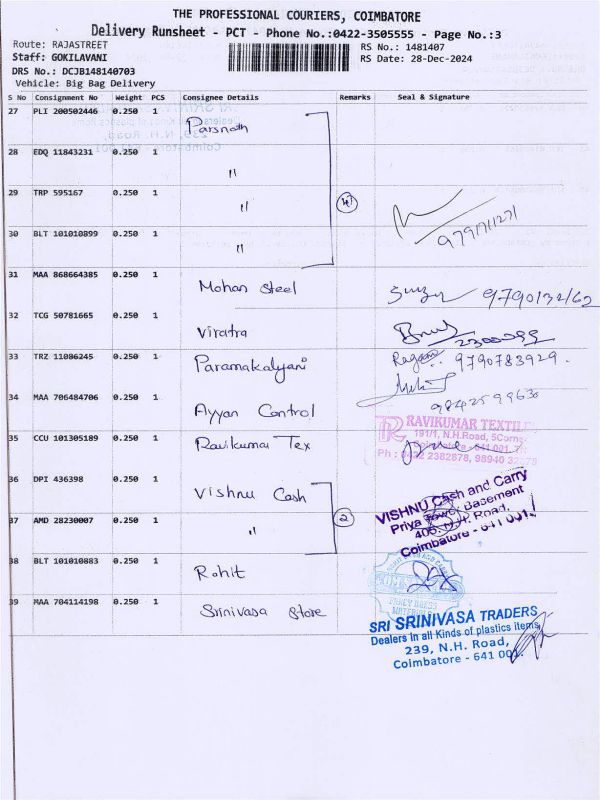 THE PROFESSIONAL COURIERS, COIMBATORE
Delivery Runsheet - PCT - Phone No.:0422-3505555 - Page No.:3
Route: RAJASTREET
RS No.: 1481407
Staff: GOKILAVANI
RS Date: 28-Dec-2024
DRS No.: DCJB148140703
Vehicle: Big Bag Delivery
S No Consignment No Weight PCS Consignee Details Remarks Seal & Signature
27 PLI 200502446 0.250 1 Parsnath
28 EDQ 11843231 0.250 1 "
29 TRP 595167 0.250 1 " 4
9791711271
30 BLT 101010899 0.250 1 "
31 MAA 868664385 0.250 1 Mohan Steel
32 TCG 50781665 0.250 1 Viratra
33 TRZ 11086245 0.250 1 Paramakalyani 9790783929.
34 MAA 706484706 0.250 1 Ayyan Control
RAVIKUMAR TEXTIL
191/1, N.H.Road, 5Corns
Coimbatore - 641 001.
Ph : 0422 2382878, 98940
35 CCU 101305189 0.250 1 Ravikumar Tex
36 DPI 436398 0.250 1 Vishnu Cash
VISHNU Cash and Carry
Priya Tower Basement
405, N.H. Road,
Coimbatore - 641 001.
37 AMD 28230007 0.250 1 " 2
38 BLT 101010883 0.250 1 Rohit
39 MAA 704114198 0.250 1 Srinivasa Store
SRI SRINIVASA TRADERS
Dealers in all Kinds of plastics items
239, N.H. Road,
Coimbatore - 641 001.